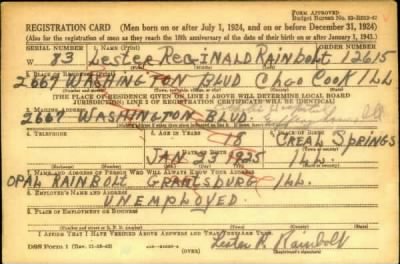 FORM APPROVED
REGISTRATION CARD (Men born on or after July 1, 1924, and on or before December 31, 1924)
(Also for the registration of men as they reach the 18th anniversary of the date of their birth on or after January 1, 1925.)
SERIAL NUMBER 1. NAME (Print) ORDER NUMBER
W 83 Lester Reginald Rainbolt 12615
2. PLACE OF RESIDENCE (Print)
2667 WASHINGTON BLVD Chgo COOK ILL
(THE PLACE OF RESIDENCE GIVEN ON LINE 2 ABOVE WILL DETERMINE LOCAL BOARD
JURISDICTION; LINE 2 OF REGISTRATION CERTIFICATE WILL BE IDENTICAL)
3. MAILING ADDRESS
2667 WASHINGTON BLVD.
4. TELEPHONE 5. AGE IN YEARS 6. PLACE OF BIRTH
18 CREAL SPRINGS
DATE OF BIRTH
JAN 23 1925 ILL.
7. NAME AND ADDRESS OF PERSON WHO WILL ALWAYS KNOW YOUR ADDRESS
OPAL RAINBOLT GRANTSBURG ILL.
8. EMPLOYER'S NAME AND ADDRESS
UNEMPLOYED.
9. PLACE OF EMPLOYMENT OR BUSINESS
I AFFIRM THAT I HAVE VERIFIED ABOVE ANSWERS AND THAT THEY ARE TRUE.
DSS Form 1 (OVER) Lester R. Rainbolt